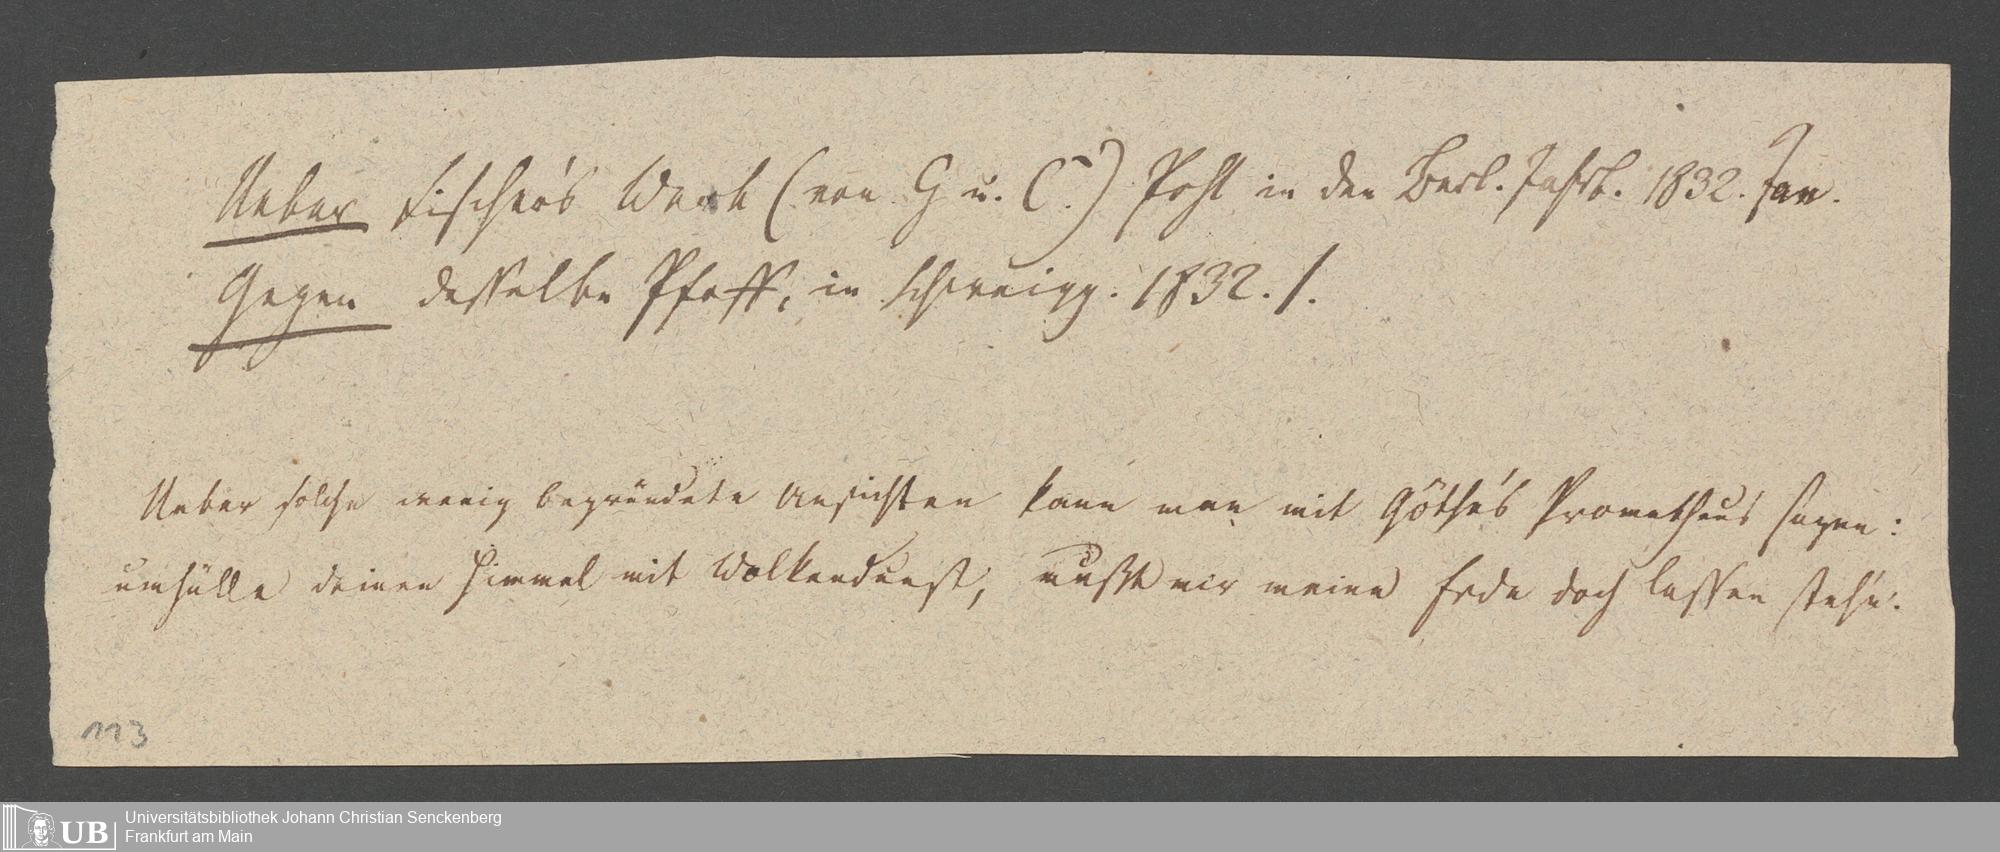 Ueber Fischer's Werk (von G u. C.) Pohl in den Berl. Jahrb. 1832. Jan.
Gegen desselbe Pfaff, in Schweigg. 1832. 1.
Ueber solche wenig begründete Ansichten kann man mit Göthe's Prometheus sagen:
umhülle deinen Himmel mit Wolkendunst, mußt mir meine Erde doch lassen stehn.
113
UB
Universitätsbibliothek Johann Christian Senckenberg
Frankfurt am Main